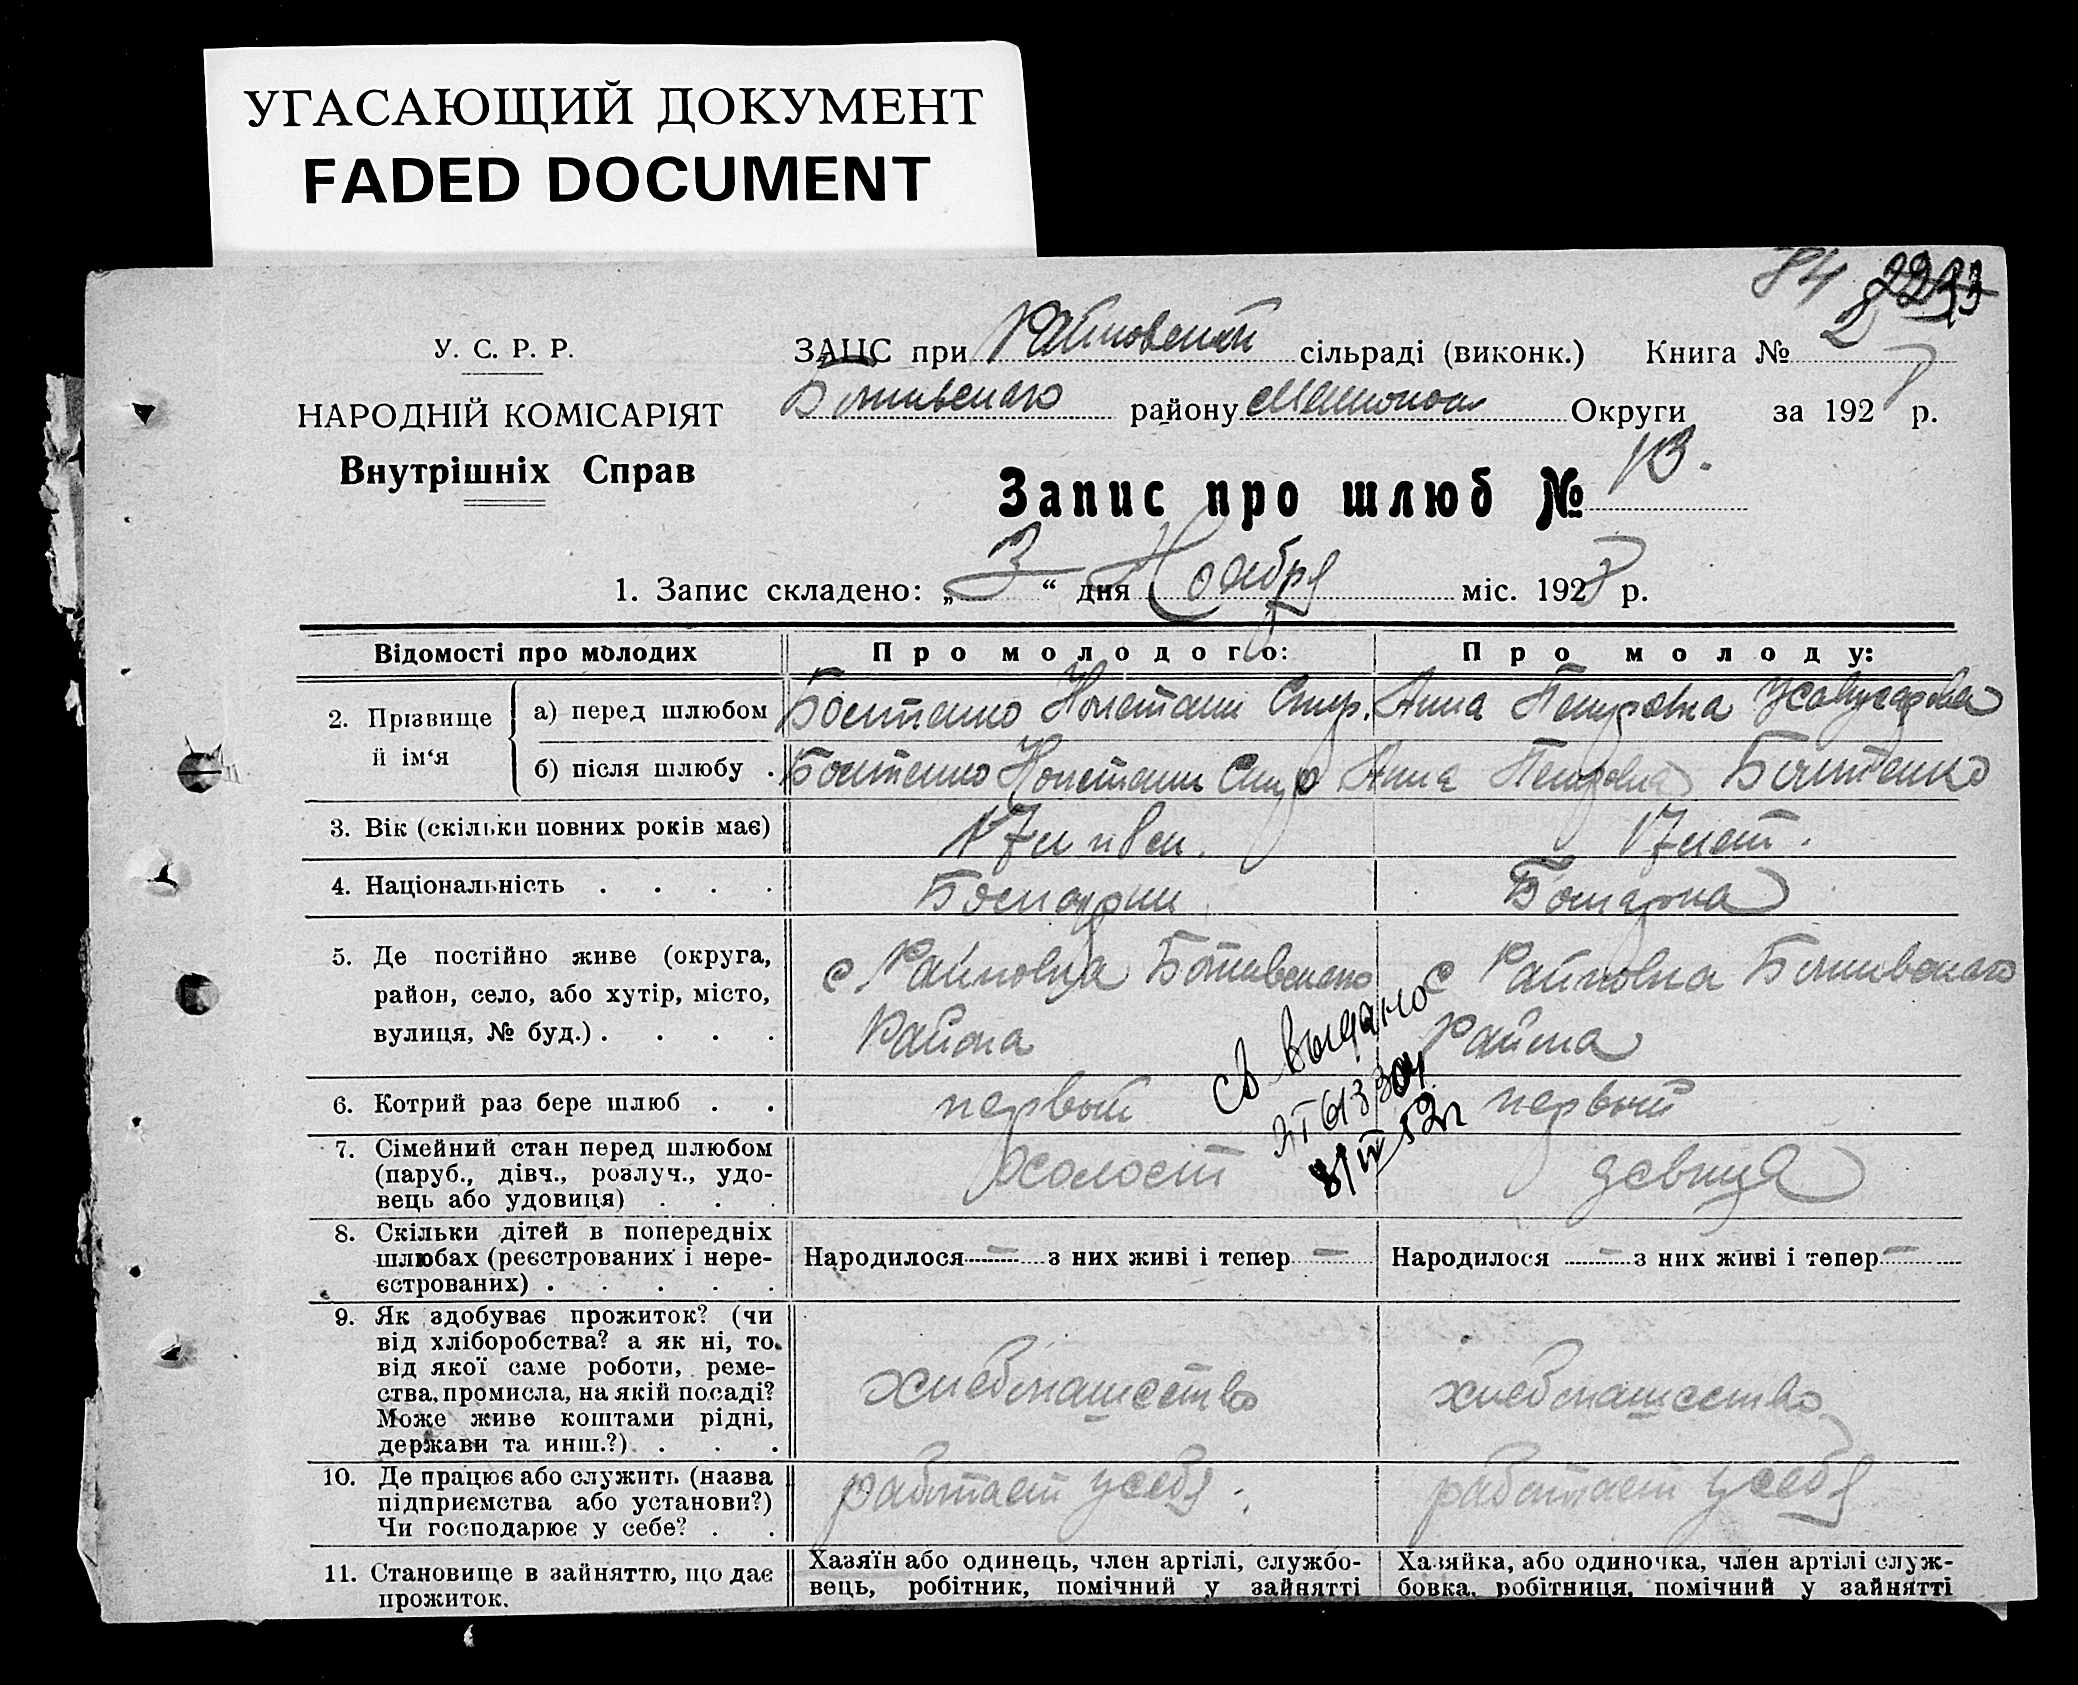 УГАСАЮЩИЙ ДОКУМЕНТ
FADED DOCUMENT
84
У. С. Р. Р.
НАРОДНІЙ КОМІСАРІЯТ
Внутрішніх Справ
ЗАЦС при Райновской сільраді (виконк.) Книга № 2
Ботивенаго району Округи за 1928 р.
Запис про шлюб № 13.
1. Запис складено: „3“ дня Ноября міс. 1928 р.
Відомості про молодих Про молодого: Про молоду:
2. Прізвище й ім'я
а) перед шлюбом Анна Петровна
б) після шлюбу . Анна Петровна Болтенко
3. Вік (скільки повних років має) 17 лет.
4. Національність . . . . Болгарин Болгарка
5. Де постійно живе (округа, с. Райновка Ботивского с Райновка Ботивского
район, село, або хутір, місто,
вулиця, № буд.) . . . . Района Района
св выдано
8/IV 52г
6. Котрий раз бере шлюб . . первый первый
7. Сімейний стан перед шлюбом
(паруб., дівч., розлуч., удо-
вець або удовиця) . . . холост девица
8. Скільки дітей в попередніх
шлюбах (реєстрованих і нере-
єстрованих) . . . . .
Народилося — з них живі і тепер — Народилося — з них живі і тепер —
9. Як здобуває прожиток? (чи
від хліборобства? а як ні, то
від якої саме роботи, реме-
ства, промисла, на якій посаді?
Може живе коштами рідні,
держави та инш.?) . . .
хлебопашество хлебопашество
10. Де працює або служить (назва
підприємства або установи?)
Чи господарює у себе? . .
работает у себя работает у себя
11. Становище в зайняттю, що дає
прожиток.
Хазяїн або одинець, член артілі, службо-
вець, робітник, помічний у зайнятті
Хазяйка, або одиночка, член артілі служ-
бовка, робітниця, помічний у зайнятті